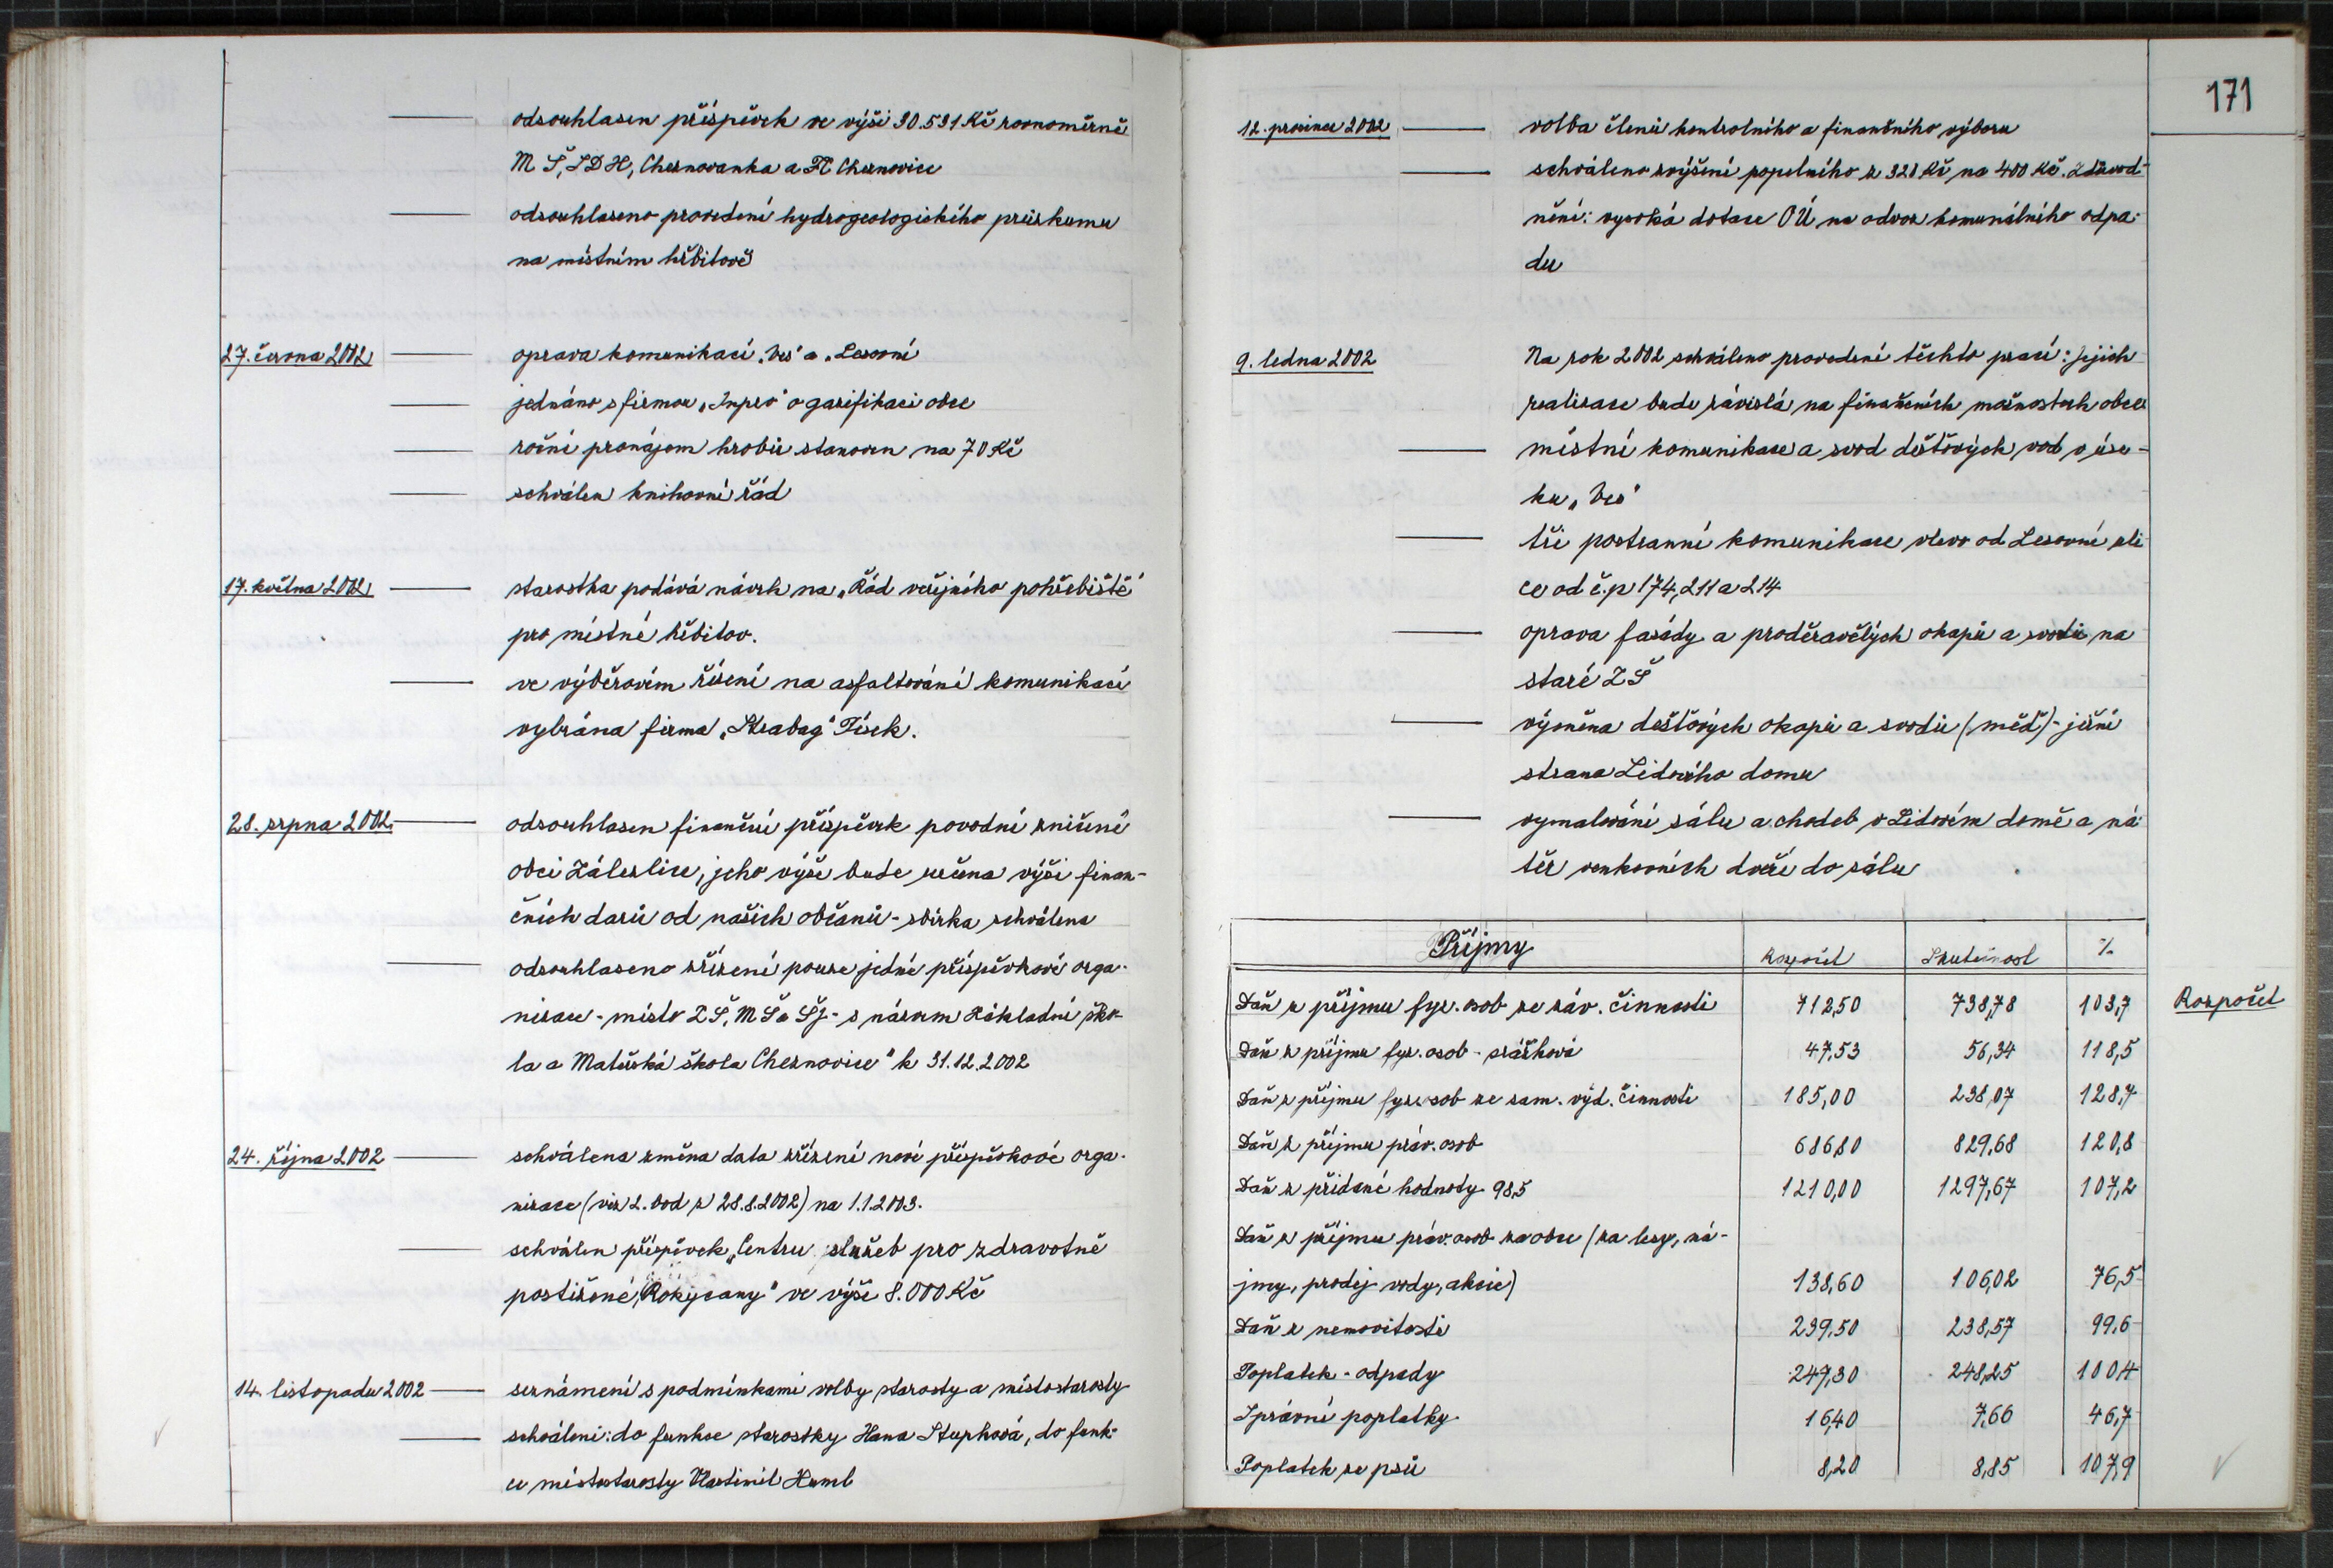 odsouhlasen příspěvek ve výši 30.531 Kč rovnoměrně
MŠ, SDH, Chernovanka a FC Chernovice
odsouhlaseno provedení hydrogeologického průzkumu
na místním hřbitově
27. června 2002
oprava komunikací „Ves" a „Lesovní
jednáno s firmou „Inpro" o gazifikaci obce
roční pronájem hrobů stanoven na 70 Kč
schválen knihovní řád
17. května 2002
starostka podává návrh na „Řád veřejného pohřebiště"
pro místné hřbitov.
ve výběrovém řízení na asfaltování komunikací
vybrána firma „Strabag" Písek.
28. srpna 2002
odsouhlasen finanční příspěvek povodní zničené
obci Zálezlice, jeho výše bude určena výší finan-
čních darů od našich občanů - sbírka schválena
odsouhlaseno zřízení pouze jedné příspěvkové orga-
nizace - místo ZŠ, MŠ a ŠJ - s názvem Základní ško-
la a Mateřská škola Chernovice" k 31.12.2002
24. října 2002
schválena změna data zřízení nové příspěvkové orga-
nizace (viz 2. bod z 28.8.2002) na 1.1.2003.
schválen příspěvek „Centru služeb pro zdravotně
postižené, Rokycany" ve výše 8.000 Kč
14. listopadu 2002
seznámení s podmínkami volby starosty a místostarosty
schváleni: do funkce starostky Hana Stuphová, do funk-
ce místostarosty Vlastimil Huml
171
12. prosince 2002
volba členů kontrolního a finančního výboru
schváleno zvýšení popelného z 328 Kč na 400 Kč. Zdůvod-
nění: vysoká dotace OÚ na odvoz komunálního odpa-
du
9. ledna 2002
Na rok 2002 schváleno provedení těchto prací: Jejich
realizace bude závislá na finančních možnostech obce
místní komunikace a svod dešťových vod v úse-
ku „Ves"
tři postranní komunikace vlevo od Lesovní uli
ce od č.p 174, 211 a 214
oprava fasády a proděravělých okapů a svodů na
staré ZŠ
výměna dešťových okapů a svodů (měď) - jižní
strana Lidového domu
vymalování sálu a chodeb v Lidovém domě a ná-
těr venkovních dveří do sálu
Příjmy Rozpočet Skutečnost %
Daň z příjmu fyz. osob ze záv. činnosti 712,50 738,78 103,7
Rozpočet
Daň z příjmu fyz. osob - srážková 47,53 56,34 118,5
Daň z příjmu fyz. osob ze sam. výd. činnosti 185,00 238,07 128,7
Daň z příjmu práv. osob 686,80 829,68 120,8
Daň z přidané hodnoty 98,5 1210,00 1297,67 107,2
Daň z příjmu práv. osob za obce (za lesy, ná-
jmy, prodej vody, akcie) 138,60 106,02 76,5
Daň z nemovitosti 239,50 238,57 99,6
Poplatek - odpady 247,30 248,25 100,4
Správní poplatky 16,40 7,66 46,7
Poplatek ze psů 8,20 8,85 107,9